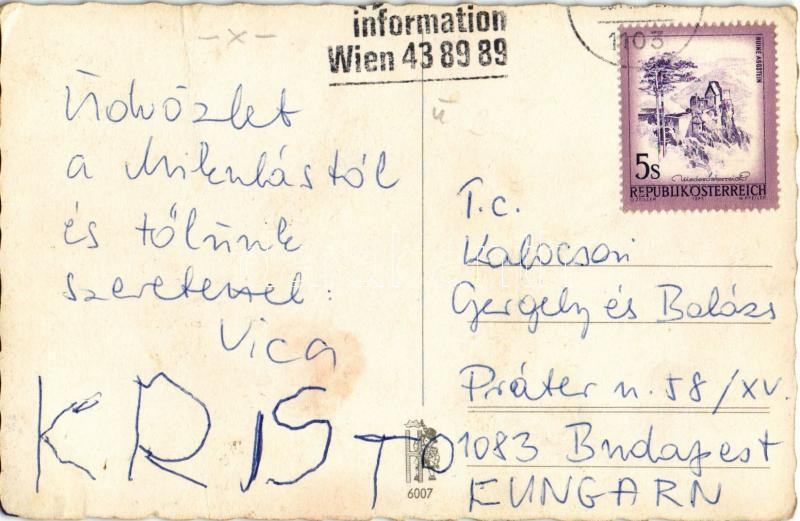 information
Wien 43 89 89
1103
RUINE AGGSTEIN
5s
Niederösterreich
REPUBLIK ÖSTERREICH
Üdvözlet
a Mikulástól
és tőlünk
szeretettel:
Vica
KRISTO
T.c.
Kalocsai
Gergely és Balázs
Práter u. 58/XV.
1083 Budapest
EUNGARN
6007